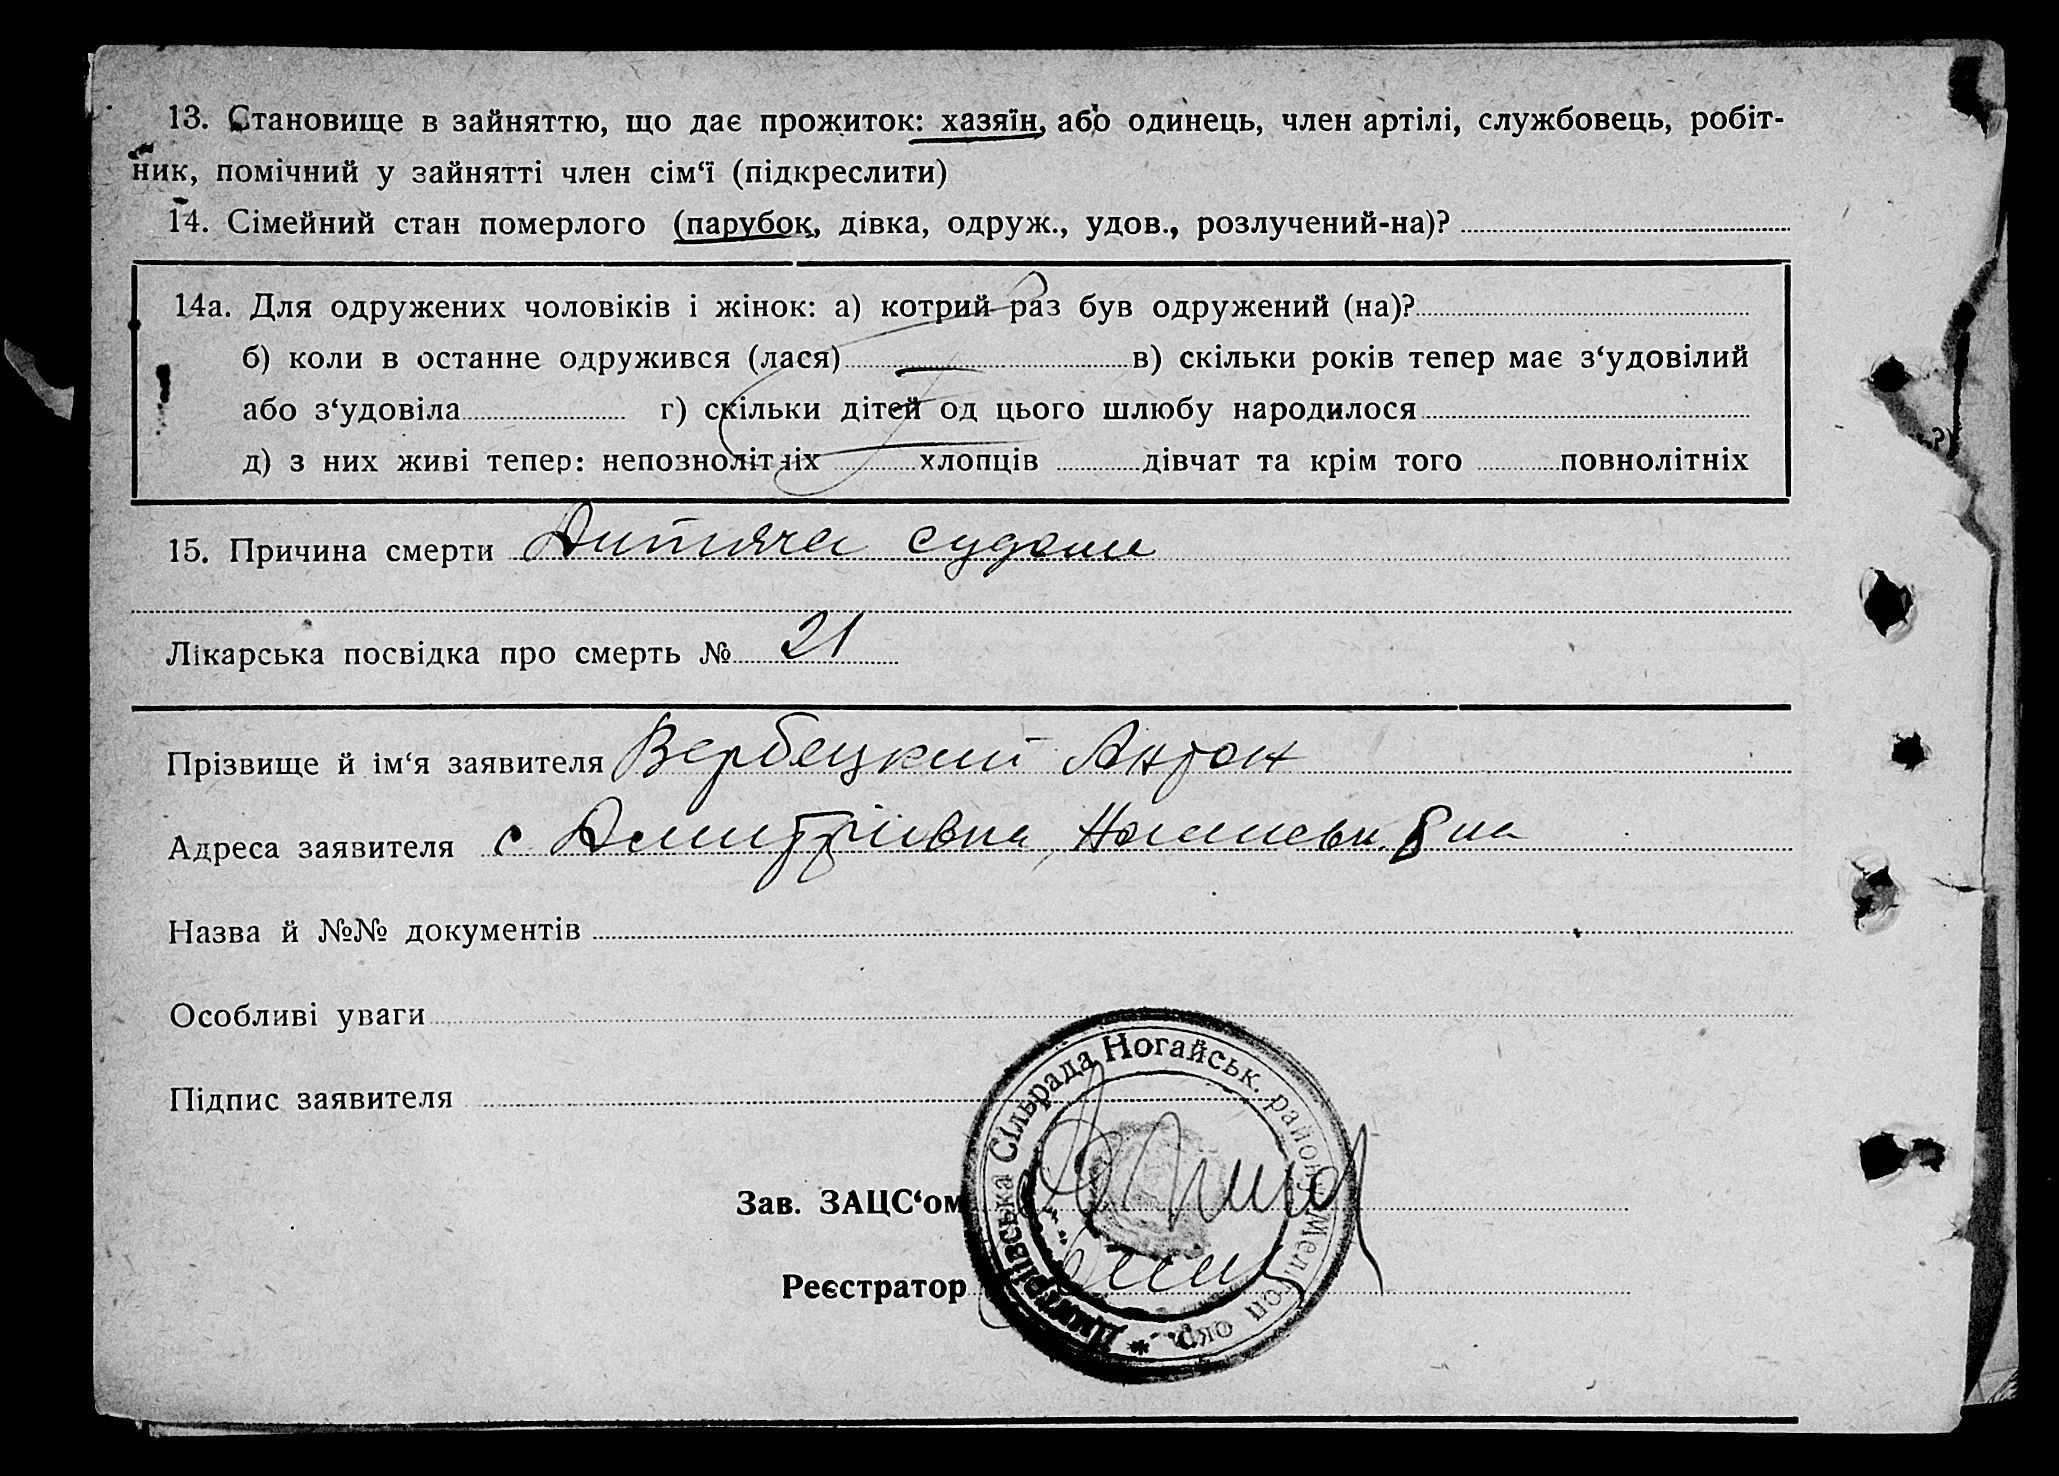 13. Становище в зайняттю, що дає прожиток: хазяїн, або одинець, член артілі, службовець, робіт-
ник, помічний у зайнятті член сім‘ї (підкреслити)
14. Сімейний стан померлого (парубок, дівка, одруж., удов., розлучений-на)?
14а. Для одружених чоловіків і жінок: а) котрий раз був одружений (на)?
б) коли в останне одружився (лася) в) скільки років тепер має з‘удовілий
або з‘удовіла г) скільки дітей од цього шлюбу народилося
д) з них живі тепер: непознолітніх хлопців дівчат та крім того повнолітніх
15. Причина смерти Дитяча судоми
Лікарська посвідка про смерть № 21
Прізвище й ім‘я заявителя Вербецкий Антон
Адреса заявителя с Дмитрівка,
Назва й №№ документів
Особливі уваги
Підпис заявителя
Зав. ЗАЦС‘ом
Реєстратор
* Дмитрівська Сільрада Ногайськ. району Мелітоп окр.